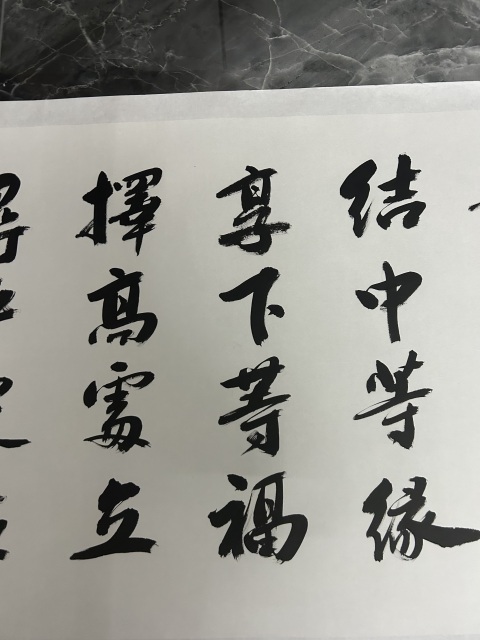 结中等缘
享下等福
擇高處立